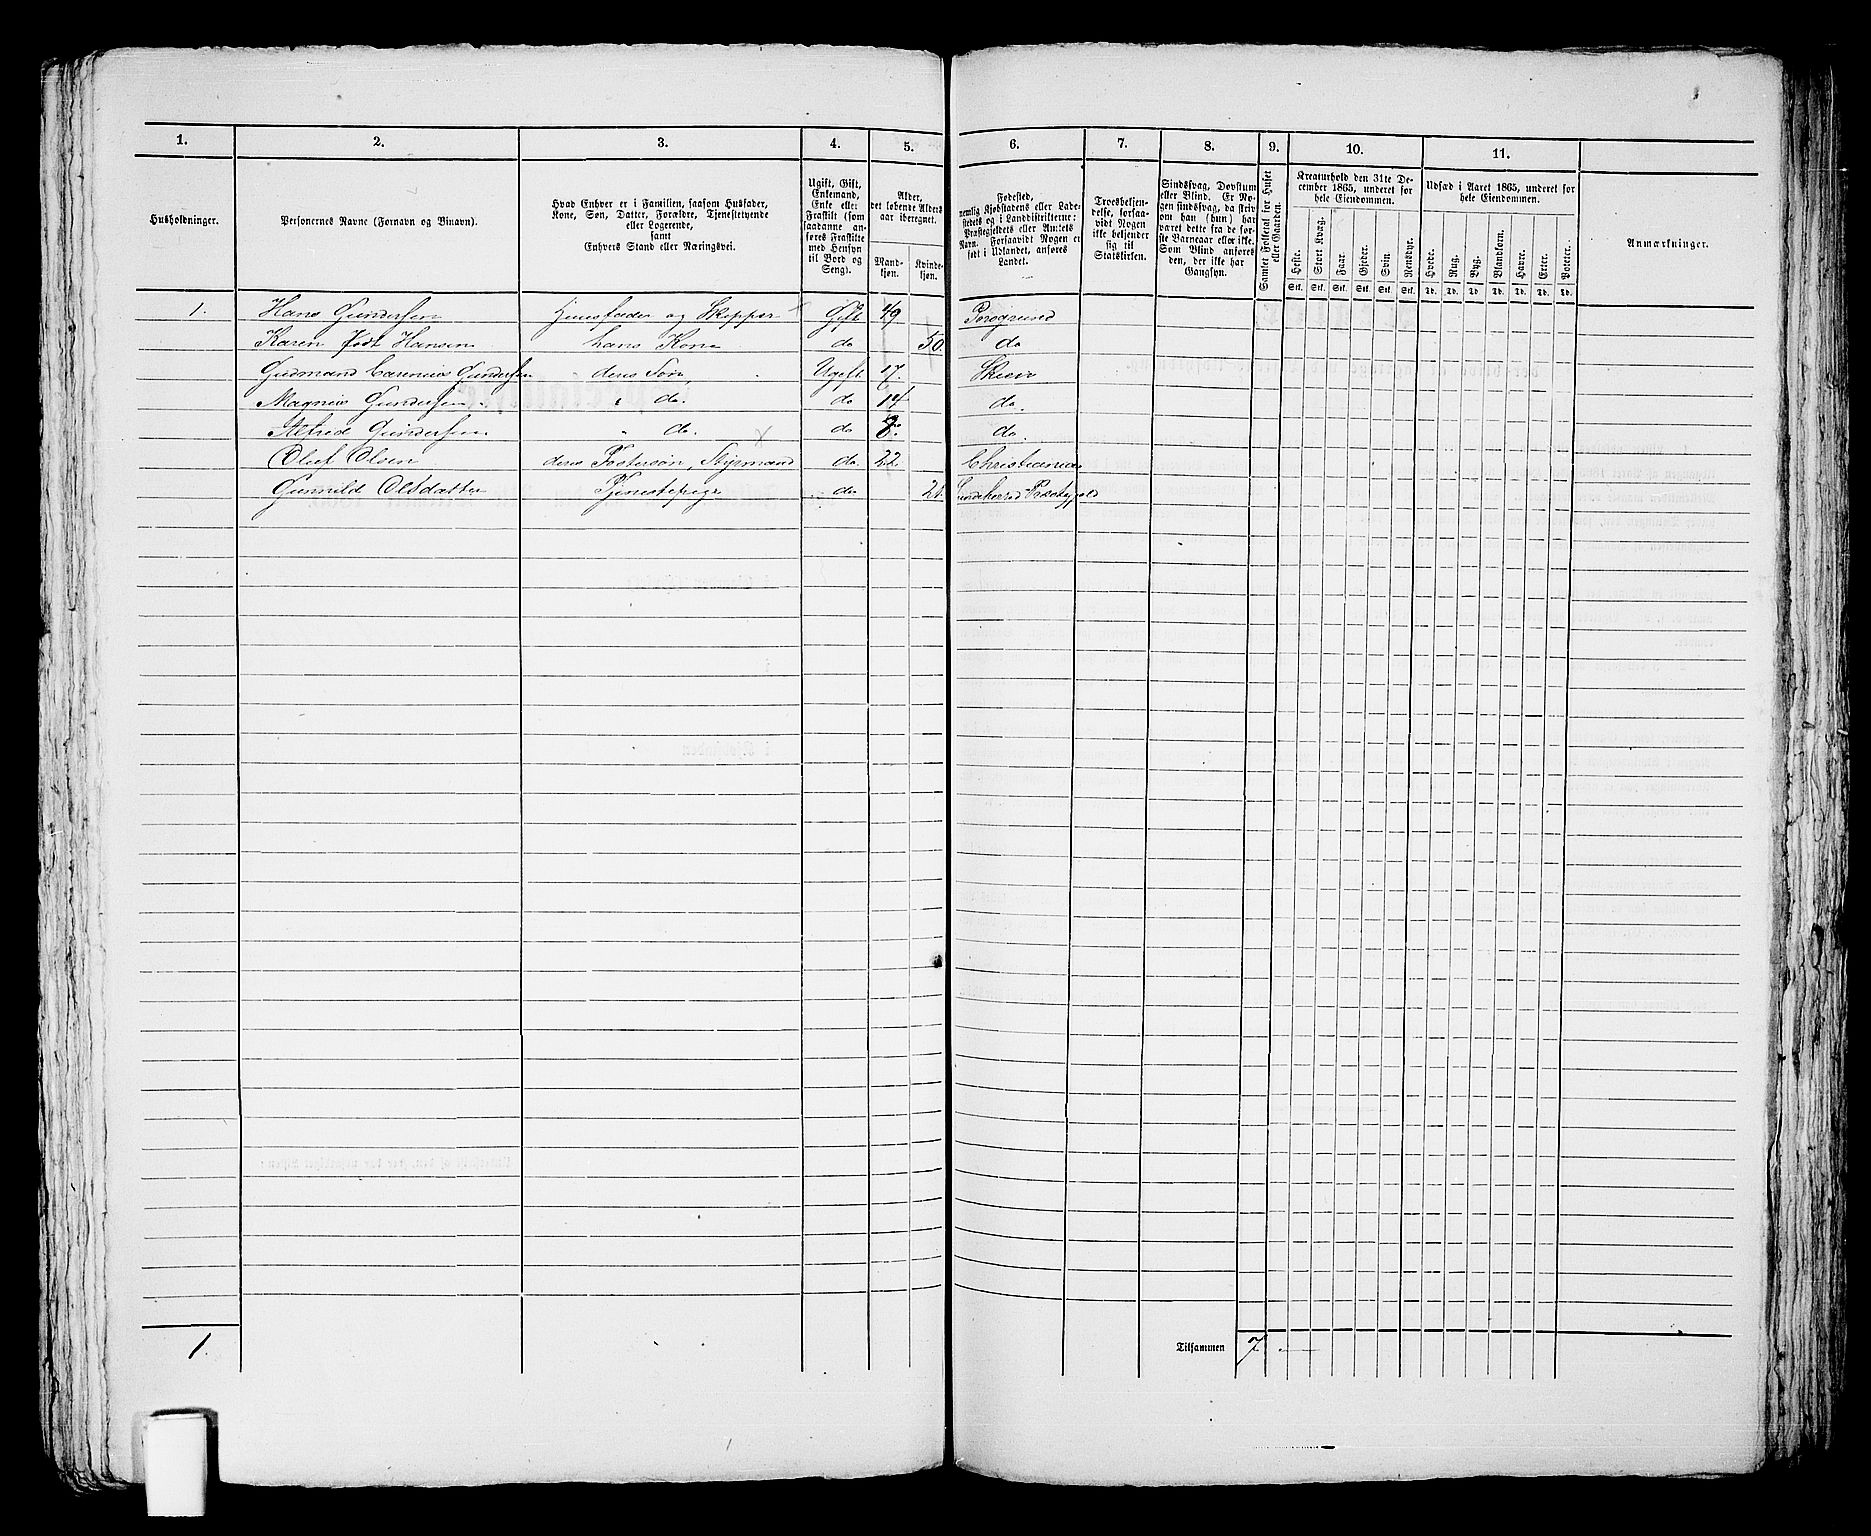 1. 2. 3. 4. 5. 6. 7. 8. 9. 10. 11.
Husholdninger.
Personernes Navne (Fornavn og Binavn).
Hvad Enhver er i Familien, saasom Husfader,
Kone, Søn, Datter, Forældre, Tjenestetyende
eller Logerende,
samt
Enhvers Stand eller Næringsvei.
Ugift, Gift,
Enkemand,
Enke eller
Fraskilt (som
saadanne an-
føres Fraskilte
med Hensyn
til Bord og
Seng).
Alder,
det løbende Alders-
aar iberegnet.
Mand-
kjøn.
Kvinde-
kjøn.
Fødested,
nemlig Kjøbstadens eller Lade-
stedets og i Landdistrikterne:
Præstegjeldets eller Amtets
Navn. Forsaavidt Nogen er
født i Udlandet, anføres
Landet.
Troesbekjen-
delse, forsaa-
vidt Nogen
ikke bekjender
sig til
Statskirken.
Sindssvag, Døvstum
eller Blind. Er No-
gen sindssvag, da skriv
om han (hun) har
været dette fra de før-
ste Barneaar eller ikke.
Som Blind anføres
den, der ikke har
Gangsyn.
Samlet Folketal for Huset
eller Gaarden.
Kreaturhold den 31te De-
cember 1865, underet for
hele Eiendommen.
Heste. Stort Kvæg. Faar. Gjeder. Svin. Rensdyr.
Stk. Stk. Stk. Stk. Stk. Stk.
Udsæd i Aaret 1865, underet for
hele Eiendommen.
Hvede. Rug. Byg. Blandkorn. Havre. Erter. Poteter.
Td. Td. Td. Td. Td. Td. Td.
Anmærkninger.
1. Hans Gundersen Huusfader og Skipper Gift 49 Porsgrund
Karen født Hansen hans Kone do 50. do
Gudmand Carenius Gundersen deres Søn, Ugift 17. Skien
Magnus Gundersen. " do. do 14 do.
Alfred Gundersen " do. do 8. do.
Oluf Olsen deres Fostersøn, Styrmand do. 22 Christiania
Gunnild Olsdatter Tjenestepige do 21. Præstegjeld
1. Tilsammen 7